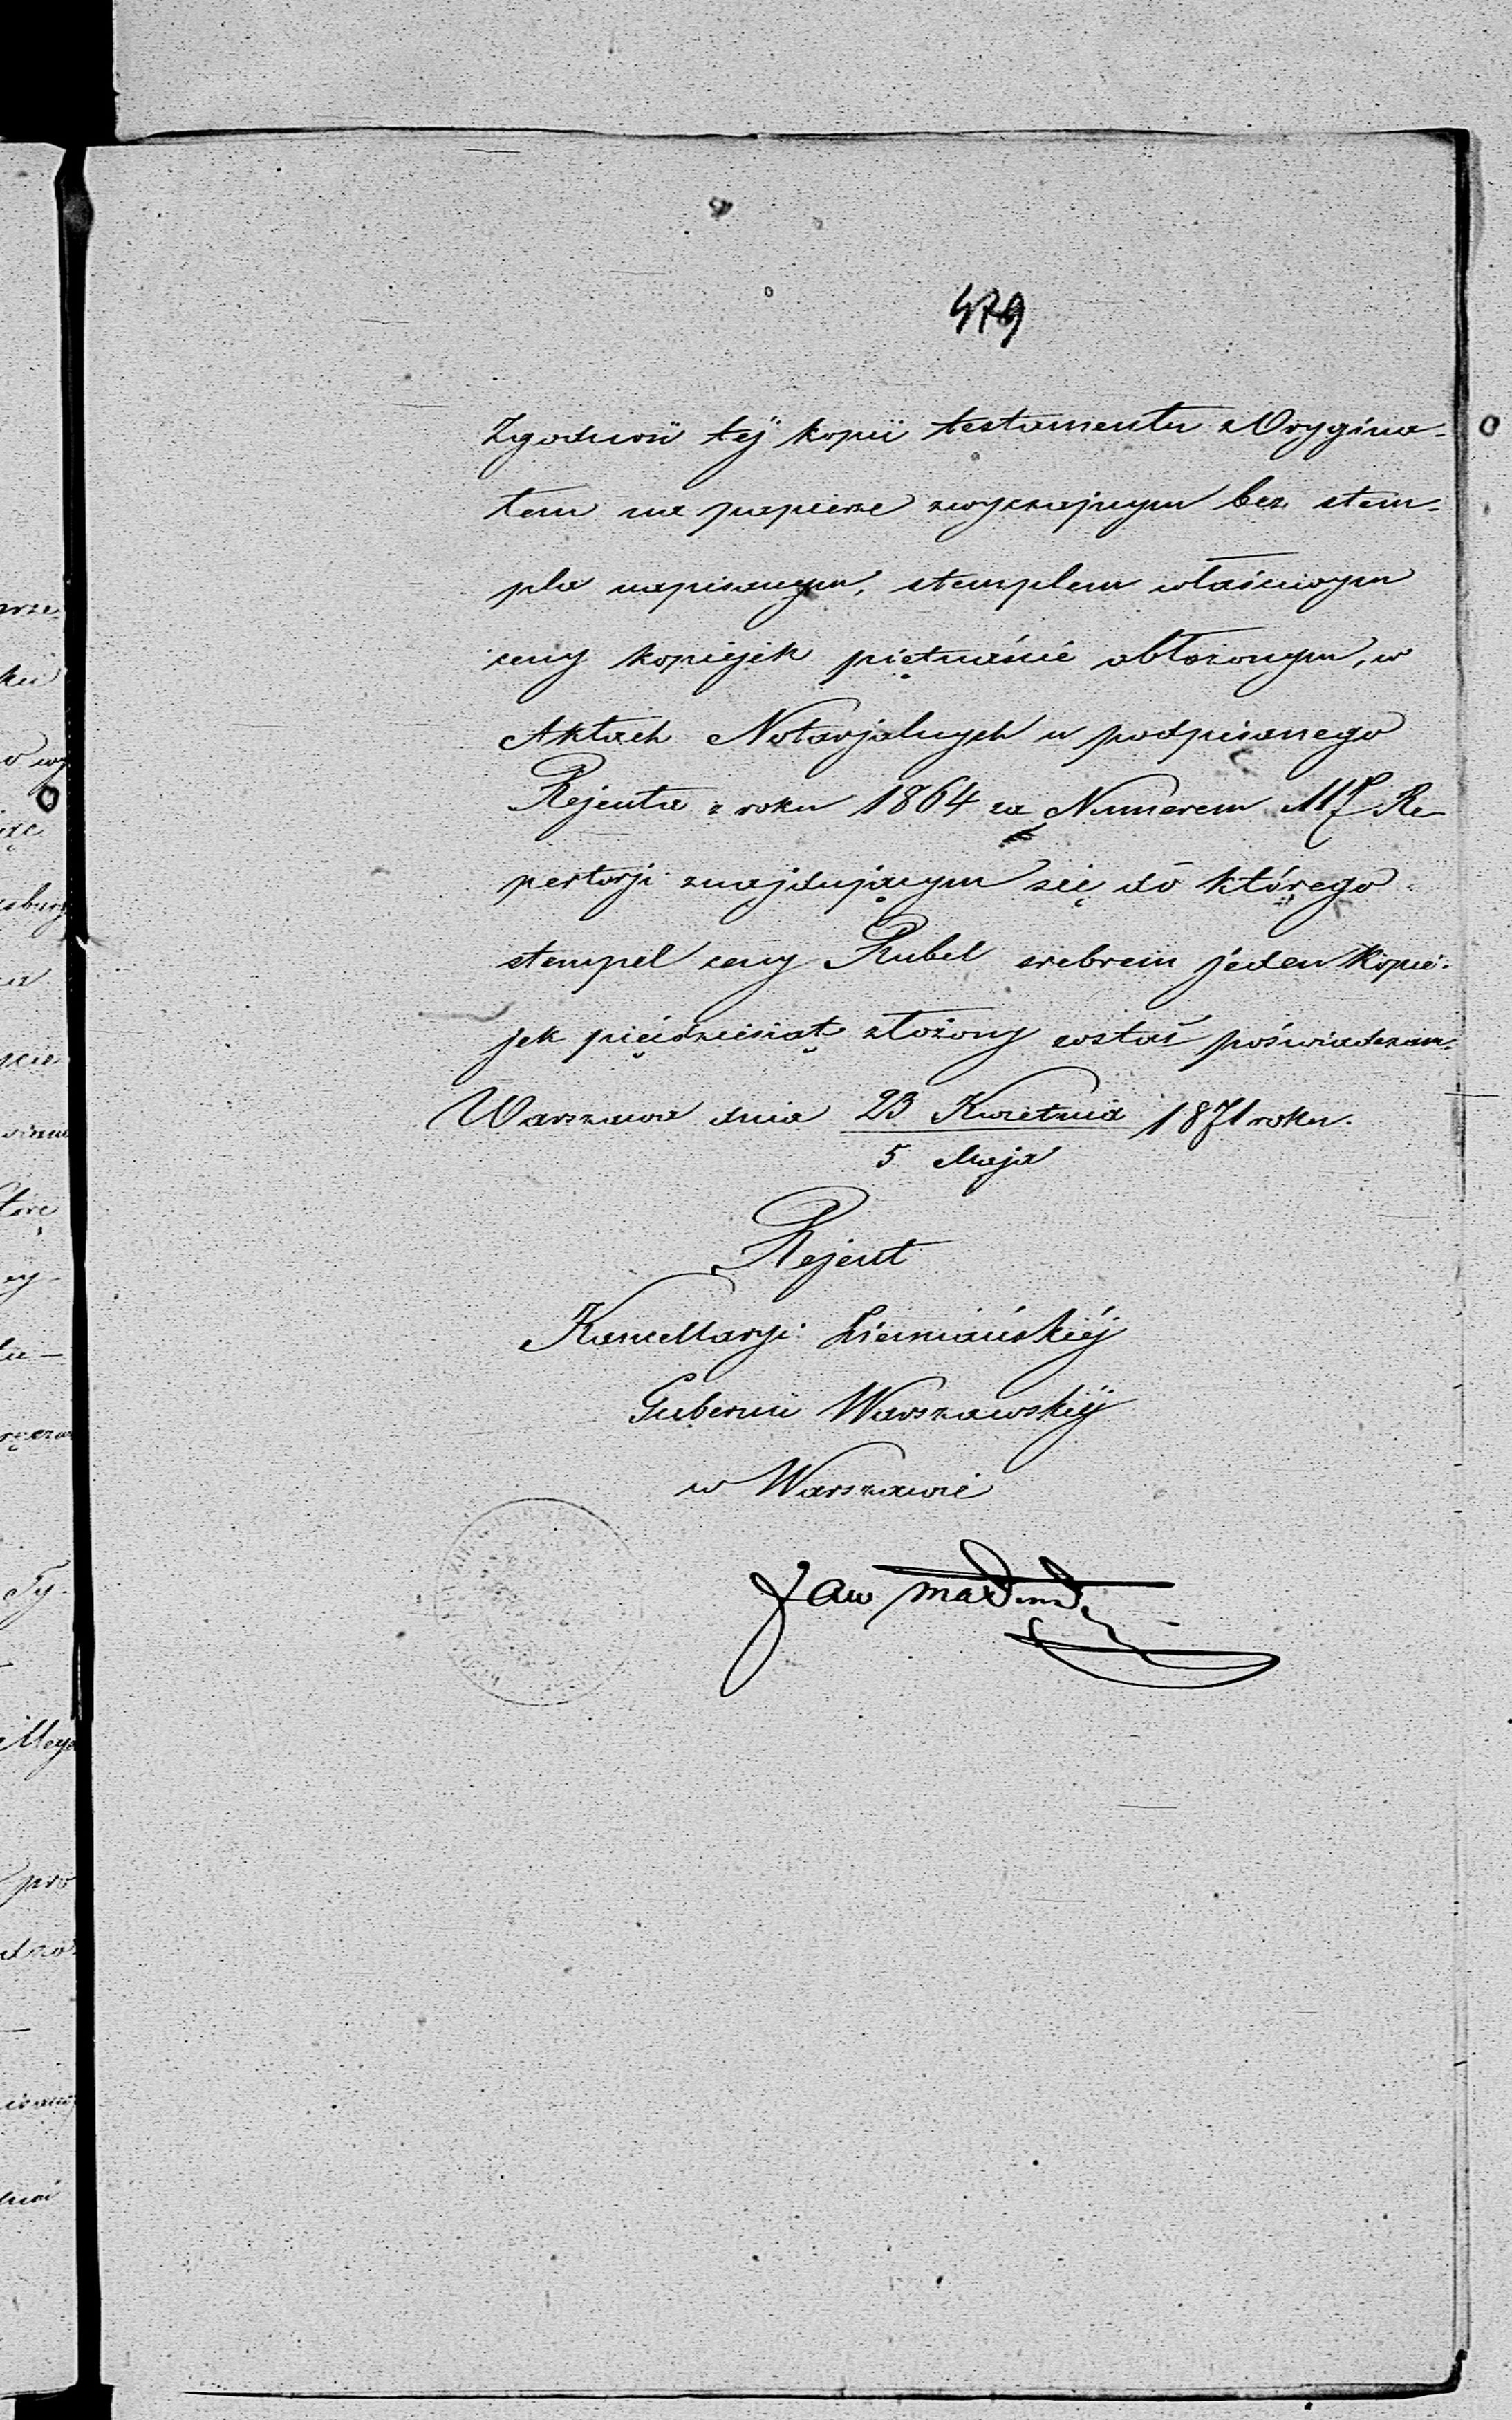 479
Zgodność téj kopii testamentu z Orygina-
łem na papierze zwyczajnym bez stem-
pla napisanym, stemplem właściwym
ceny kopiejek piętnaście obłożonym, w
Aktach Notarjalnych u podpisanego
Rejenta z roku 1864 za Numerem 117 Re-
pertorji znajdującym się do którego
stempel ceny Rubel srebrem jeden kopie-
jek pięćdziesiąt złożony został poświadczam.
Warszawa dnia 23 Kwietnia 1871 roku.
5 Maja
Rejent
Kancellaryi Ziemiańskiéj
Gubernii Warszawskiéj
w Warszawie
Jan